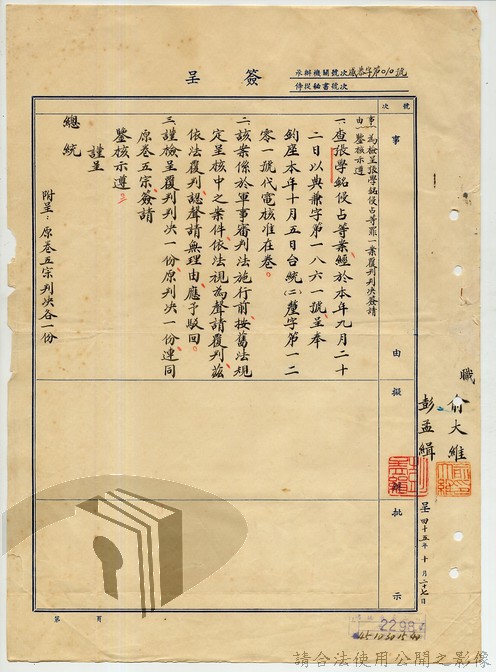 簽呈
承辦機關號次盛恭字第010號
侍從秘書號次
號次
事由
擬辦
批示
事由：為檢呈張學銘侵占等罪一案覆判判決簽請鑒核示遵
一、查張學銘侵占等案經於本年九月二十
二日以典兼字第一八六一號呈奉
鈞座本年十月五日台統(二)釐字第一二
零一號代電核准在卷。
二、該案係於軍事審判法施行前，按舊法規
定呈核中之案件依法視為聲請覆判，茲
依法覆判，認聲請無理由，應予駁回。
三、謹檢呈覆判判決一份，原判決一份，連同
原卷五宗，簽請
鑒核示遵。
謹呈
總統
附呈：原卷五宗判決各一份
職
俞大維
彭孟緝
呈 四十五年十月二十七日
第 頁
2298
請合法使用公開之影像